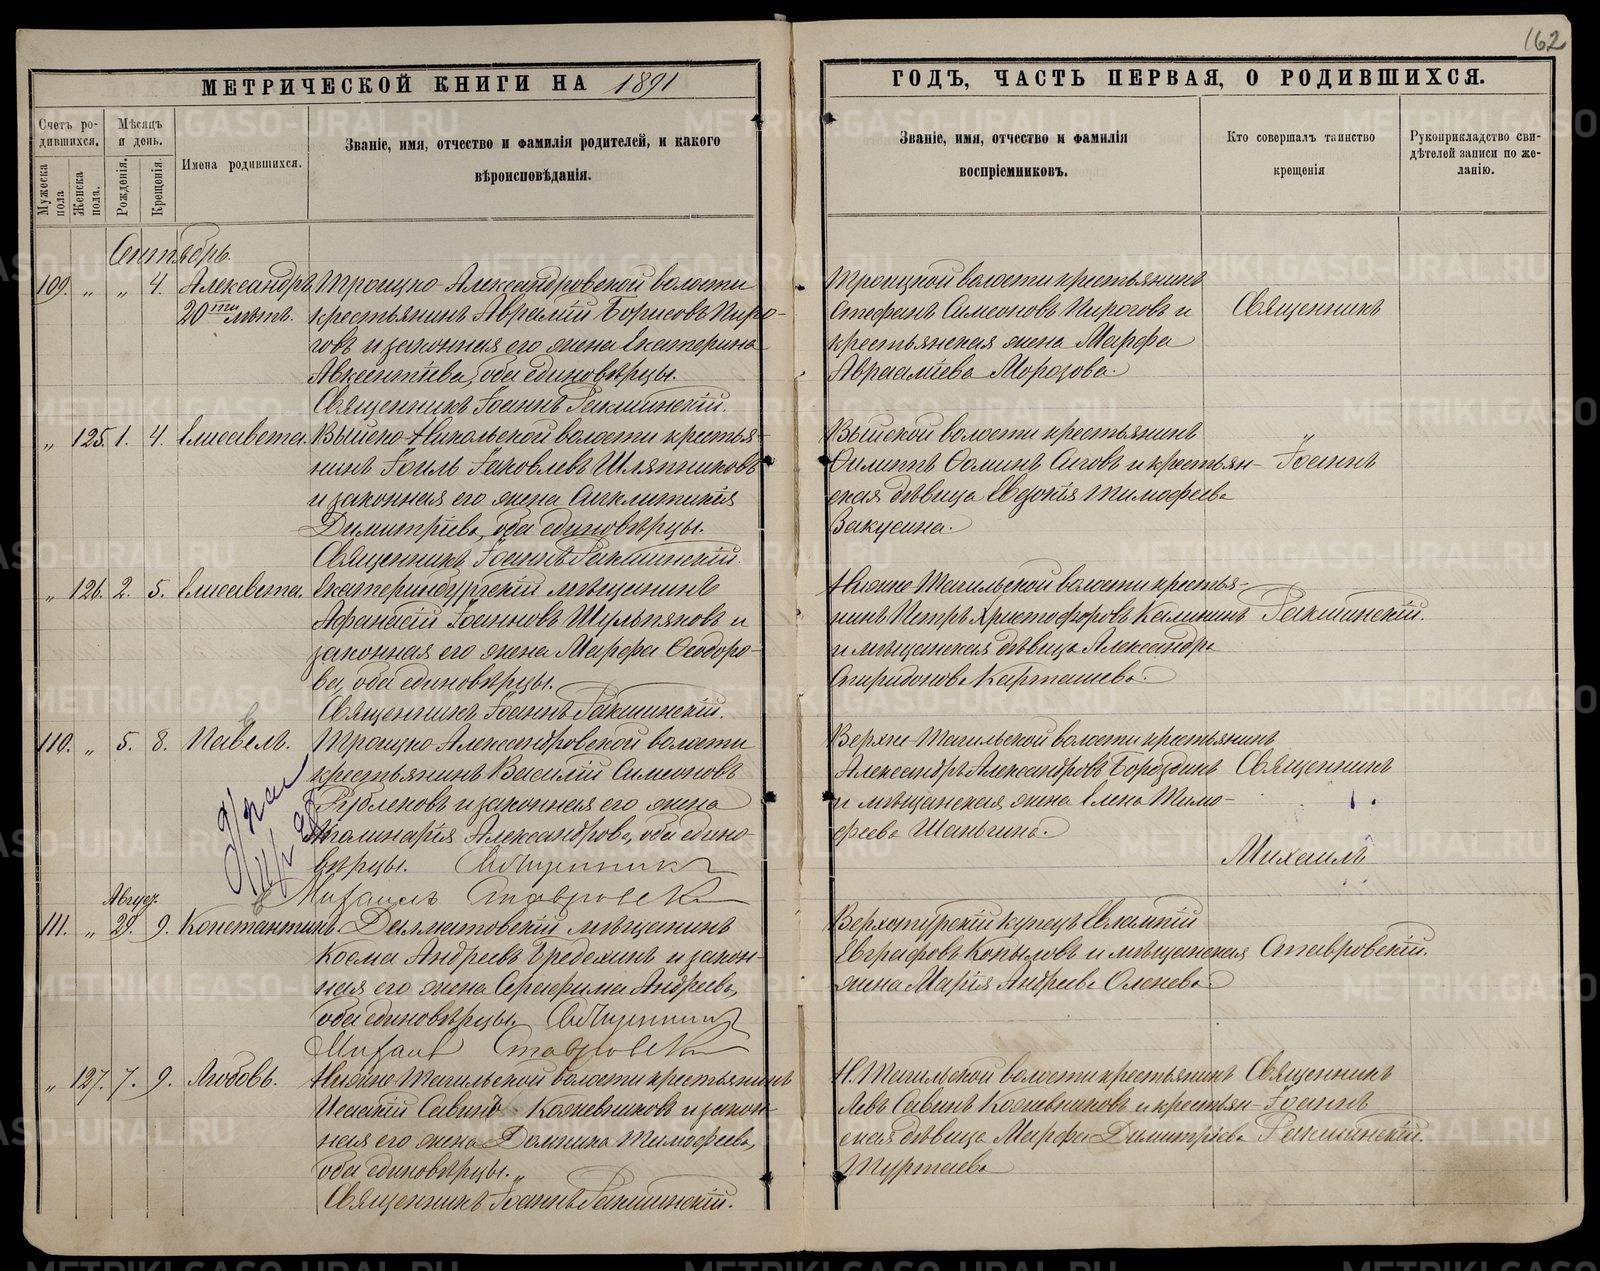 162
МЕТРИЧЕСКОЙ КНИГИ НА 1891
ГОДЪ, ЧАСТЬ ПЕРВАЯ, О РОДИВШИХСЯ.
Счетъ ро-
дившихся.
Мужеска
пола
Женска
пола.
Мѣсяцъ
и день.
Рожденія.
Крещенія
Имена родившихся.
Званіе, имя, отчество и фамилія родителей, и какого
вѣроисповѣданія.
Званіе, имя, отчество и фамилія
воспріемниковъ.
Кто совершалъ таинство
крещенія
Рукоприкладство сви-
дѣтелей записи по же-
ланію.
Сентябрь.
109. „ „ 4. Александръ
20ти лѣтъ.
Троицко-Александровской волости
крестьянинъ Аврамій Борисовъ Пиро-
говъ и законная его жена Екатерина
Авксентіева, оба единовѣрцы.
Священникъ Іоаннъ Ракшинскій.
Троицкой волости крестьянинъ
Стефанъ Симеоновъ Пироговъ и
крестьянская жена Марфа
Авраамiева Морозова.
Священникъ
„ 125. 1. 4. Елисавета.
Выйско-Никольской волости крестья-
нинъ Іоиль Іаковлевъ Шляпниковъ
и законная его жена Синклитикія
Димитріева, оба единовѣрцы.
Священникъ Іоаннъ Ракшинскій.
Выйской волости крестьянинъ
Филиппъ Фоминъ Сиговъ и крестьян-
ская дѣвица Евдокія Тимофеева
Вакусина.
Іоаннъ
„ 126. 2. 5. Елисавета.
Екатеринбургскій мѣщанинъ
Афанасій Іоанновъ Шульпяковъ и
законная его жена Марфа Феодоро-
ва, оба единовѣрцы.
Священникъ Іоаннъ Ракшинскій.
Нижне-Тагильской волости крестья-
нинъ Петръ Христофоровъ Калининъ
и мѣщанская дѣвица Александра
Спиридонова Карташева.
Ракшинскій.
110. „ 5. 8. Павелъ.
Троицко-Александровской волости
крестьянинъ Василій Симеоновъ
Рублековъ и законная его жена
Аполинарія Александрова, оба едино-
вѣрцы. Священникъ
Михаилъ Ставровскій
Верхне-Тагильской волости крестьянинъ
Александръ Александровъ Бороздинъ
и мѣщанская жена Елена Тимо-
феева Шаньгина.
Священникъ
Михаилъ
Август.
111. „ 29. 9. Константинъ
Далматовскій мѣщанинъ
Косма Андреевъ Бредехинъ и закон-
ная его жена Серафима Андреева,
оба единовѣрцы. Священникъ
Михаилъ Ставровскій
Верхотурскій купецъ Евлампій
Евграфовъ Копыловъ и мѣщанская
жена Марія Андреева Оленева.
Ставровскій.
„ 127. 7. 9. Любовь.
Нижне-Тагильской волости крестьянинъ
Исаакій Савинъ Кожевниковъ и закон-
ная его жена Домника Тимофеева,
оба единовѣрцы.
Священникъ Іоаннъ Ракшинскій.
Н.Тагильской волости крестьянинъ
Левъ Савинъ Кожевниковъ и крестьян-
ская дѣвица Марфа Димитріева
Туртаева
Священникъ
Іоаннъ
Ракшинскій.
METRIKI.GASO-URAL.RU